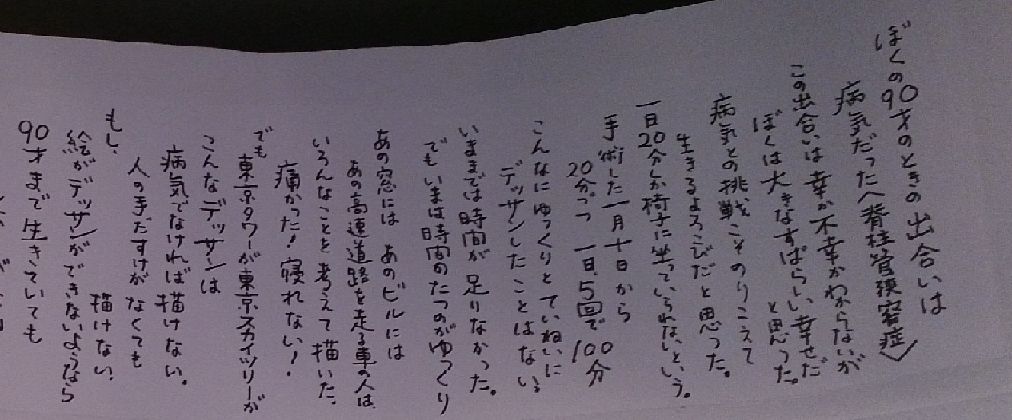 ぼくの90才のときの出合いは
病気だった〈脊柱管狭窄症〉
この出合いは幸か不幸かわからないが
ぼくは大きなすばらしい幸せだ
と思った。
病気との挑戦こそのりこえて
生きるよろこびだと思った。
一日20分しか椅子に坐っていられないという。
手術した一月十日から
20分づつ 一日5回で100分
こんなにゆっくりとていねいに
デッサンしたことはない。
いままでは時間が足りなかった。
でもいまは時間のたつのがゆっくり
あの窓には あのビルには
あの高速道路を走る車の人は
いろんなことを考えて描いた。
痛かった!寝れない!
でも 東京タワーが東京スカイツリーが
こんなデッサンは
病気でなければ描けない。
人の手だすけがなくても
描けない。
もし、
絵がデッサンができないようなら
90才まで生きていても